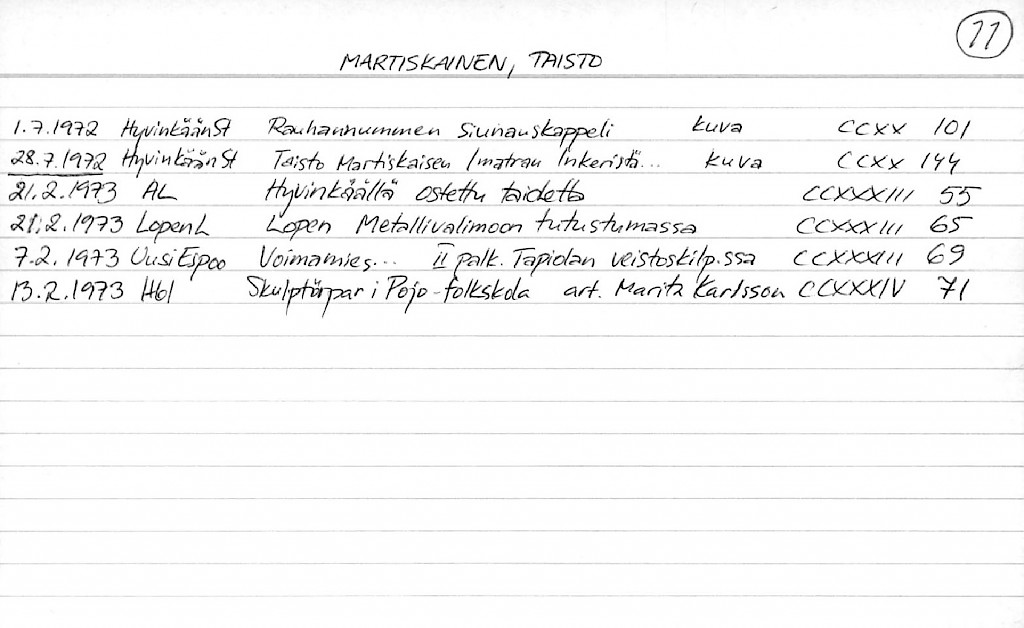 11
MARTISKAINEN, TAISTO
1.7.1972 HyvinkäänSt Rauhannummen Siunauskappeli kuva CCXX 101
28.7.1972 HyvinkäänSt Taisto Martiskaisen Imatran Inkeristä... kuva CCXX 144
21.2.1973 AL Hyvinkäällä ostettu taidetta CCXXXIII 55
21.2.1973 LopenL Lopen Metallivalimoon tutustumassa CCXXXIII 65
7.2.1973 UusiEspoo Voimamies... II palk. Tapiolan veistoskilp.ssa CCXXXIII 69
13.2.1973 Hbl Skulptörpar i Pojo-folkskola art. Marita Karlsson CCXXXIV 71